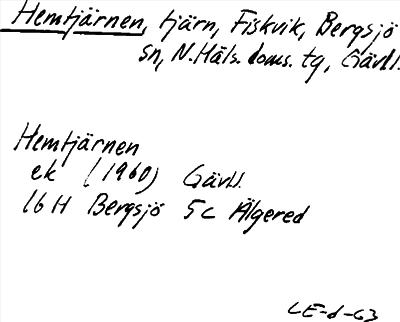 Hemtjärnen, tjärn, Fiskvik, Bergsjö
sn, N. Häls. doms. tg, Gävl l.
Hemtjärnen
ek (1960) Gävl l.
16 H Bergsjö 5c Älgered
LE-d-63